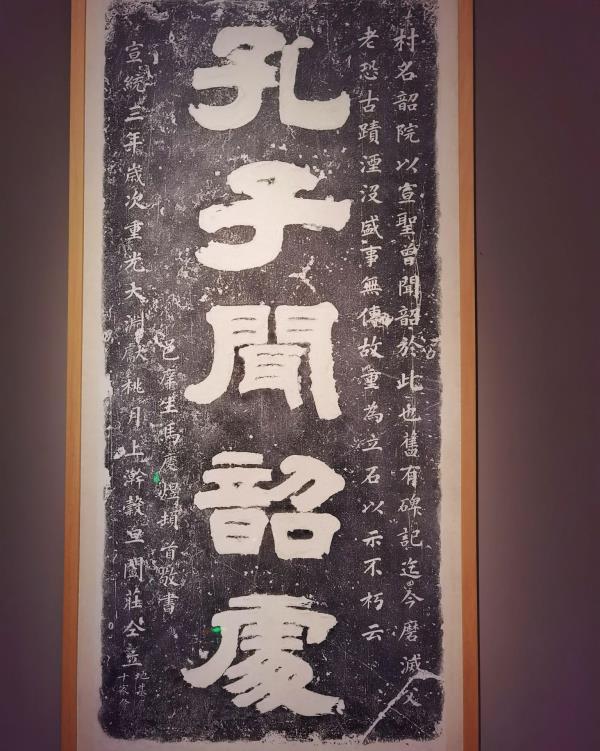 村名韶院以宣聖曾聞韶於此也舊有碑記迄今磨滅父
老恐古蹟湮沒盛事無傳故重為立石以示不朽云
孔子聞韶處
邑庠生馬首敬書
宣統三年歲次重光大淵獻桃月上澣穀旦闔莊仝立